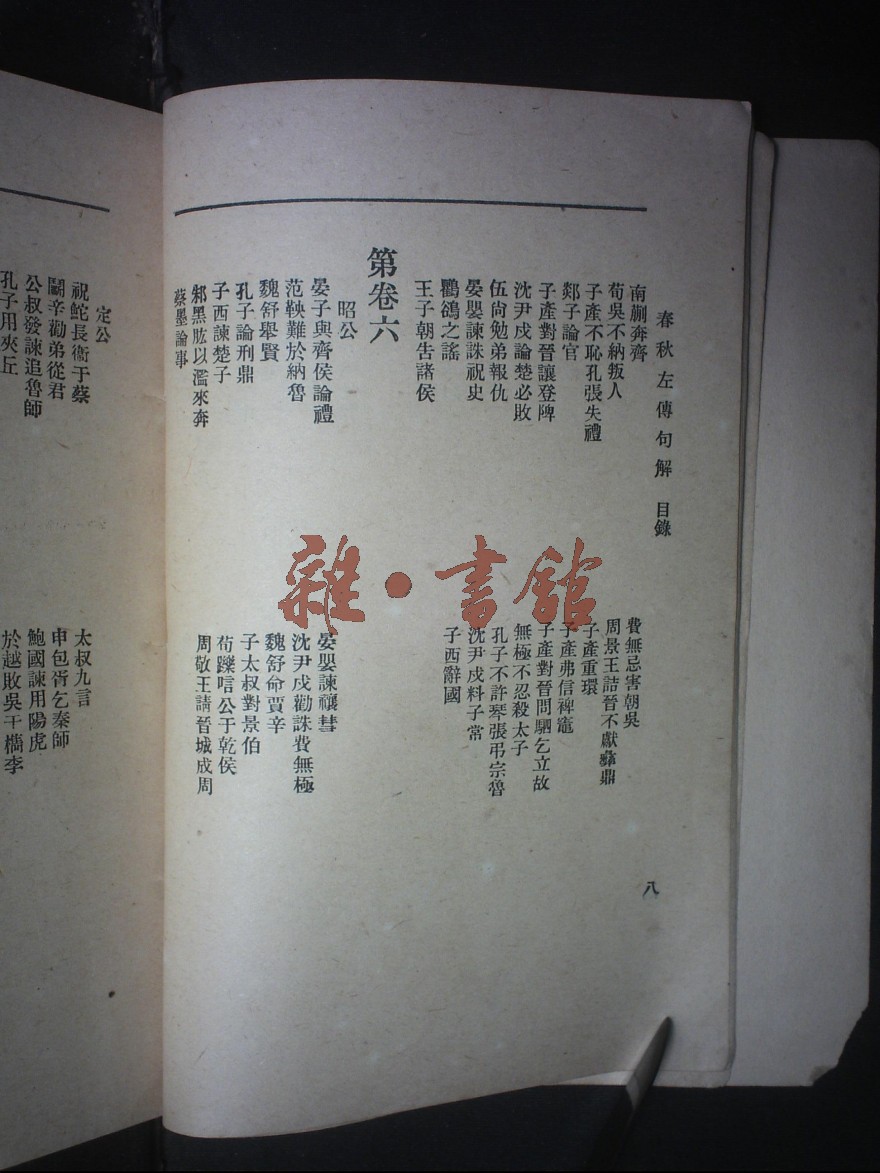 春秋左傳句解 目錄
八
南蒯奔齊
費無忌害朝吳
荀吳不納叛人
周景王詰晉不獻彝鼎
子產不恥孔張失禮
子產重環
郯子論官
子產弗信裨竈
子產對晉讓登陴
子產對晉問駟乞立故
沈尹戍論楚必敗
無極不忍殺太子
伍尙勉弟報仇
孔子不許琴張弔宗魯
晏嬰諫誅祝史
沈尹戍料子常
鸜鵒之謠
子西辭國
王子朝吿諸侯
第卷六
昭公
晏子與齊侯論禮
晏嬰諫禳彗
范鞅難於納魯
沈尹戍勸誅費無極
魏舒舉賢
魏舒命賈辛
孔子論刑鼎
子太叔對景伯
子西諫楚子
荀躒唁公于乾侯
邾黑肱以濫來奔
周敬王請晉城成周
蔡墨論事
定公
祝鮀長衞于蔡
太叔九言
鬬辛勸弟從君
申包胥乞秦師
公叔發諫追魯師
鮑國諫用陽虎
孔子用夾丘
於越敗吳于檇李
雜·書館